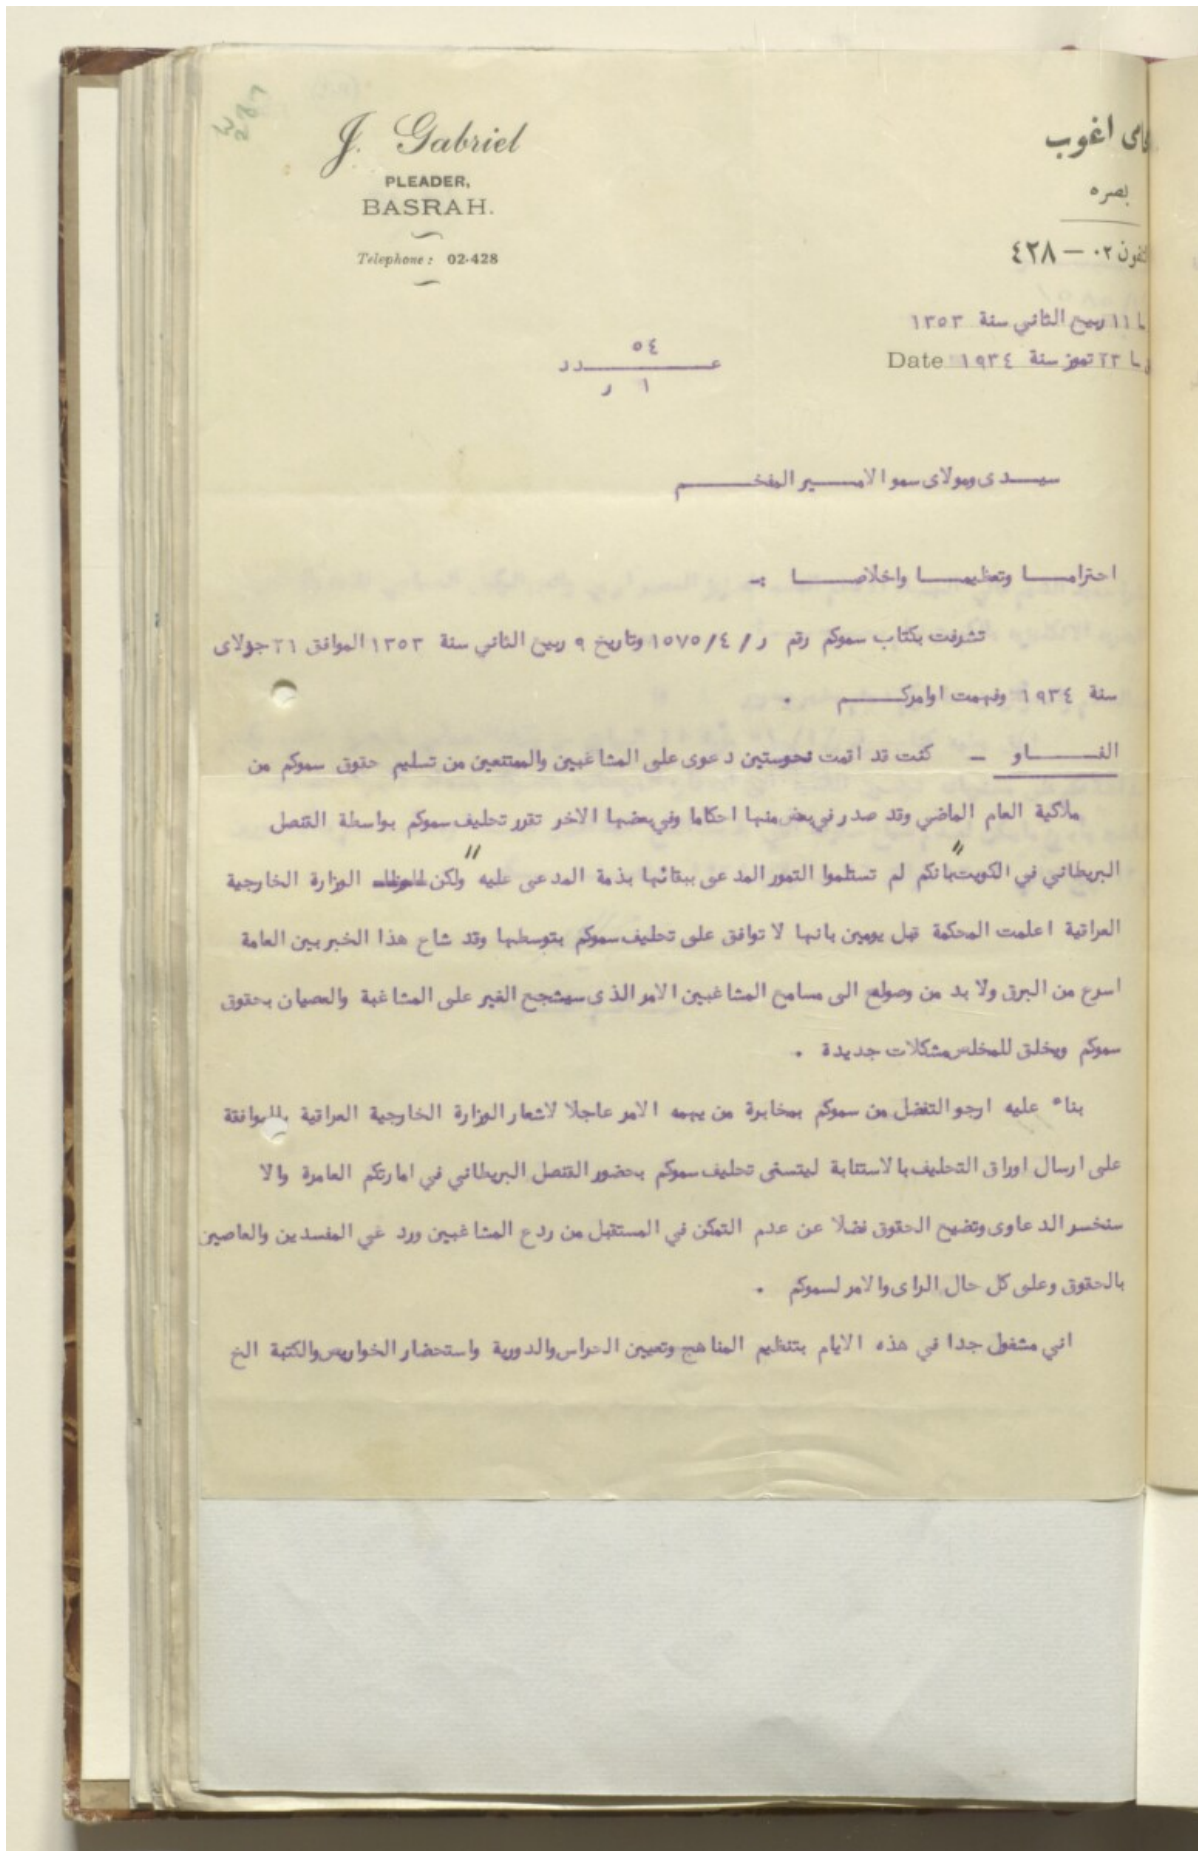 J. Gabriel
PLEADER,
BASRAH.
Telephone : 02-428
اغوب
بصره
٠٢ — ٤٢٨
١١ ربيع الثاني سنة ١٣٥٣
Date ٢٣ تموز سنة ١٩٣٤
٥٤
عــــدد
١ ر
سيــدى ومولاى سمو الامــــير المفخــــم
احترامــا وتعظيمــا واخلاصــا :-
تشرفت بكتاب سموكم رقم ر/ ٤/ ١٥٧٥ وتاريخ ٩ ربيع الثاني سنة ١٣٥٣ الموافق ٢١ جولاى
سنة ١٩٣٤ وفهمت اوامركــــم .
الفــــاو - كنت قد اقمت نحوستين دعوى على المشاغبين والممتنعين من تسليم حقوق سموكم من
ملاكية العام الماضي وقد صدر في بعض منها احكاما وفي بعضها الاخر تقرر تحليف سموكم بواسطة القنصل
البريطاني في الكويت بانكم لم تستلموا التمور المدعى ببقائها بذمة المدعى عليه " ولكن الوزارة الخارجية
العراقية اعلمت المحكمة قبل يومين بانها لا توافق على تحليف سموكم بتوسطها وقد شاع هذا الخبر بين العامة
اسرع من البرق ولا بد من وصوله الى مسامع المشاغبين الامر الذى سيشجع الغير على المشاغبة والعصيان بحقوق
سموكم ويخلق للمخلص مشكلات جديدة .
بناء عليه ارجو التفضل من سموكم بمخابرة من يهمه الامر عاجلا لاشعار الوزارة الخارجية العراقية بالموافقة
على ارسال اوراق التحليف بالاستنابة ليتسنى تحليف سموكم بحضور القنصل البريطاني في امارتكم العامرة والا
سنخسر الدعاوى وتضيع الحقوق فضلا عن عدم التمكن في المستقبل من ردع المشاغبين ورد غي المفسدين والعاصين
بالحقوق وعلى كل حال الراى والامر لسموكم .
اني مشغول جدا في هذه الايام بتنظيم المناهج وتعيين الحراس والدورية واستحضار الخواريص والكتبة الخ